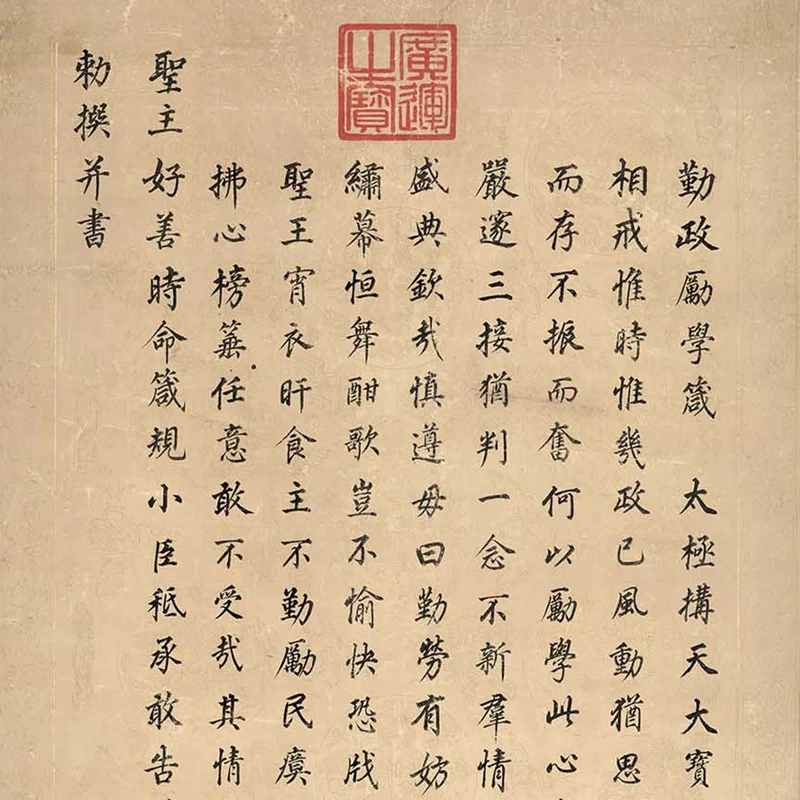 廣運之寶
勤政勵學箴 太極構天大寶
相戒惟時惟幾政已風動猶思
而存不振而奮何以勵學此心
嚴邃三接猶判一念不新羣情
盛典欽哉慎遵毋曰勤勞有妨
繡幕恒舞酣歌豈不愉快恐戕
聖王宵衣旰食主不勤勵民瘼
拂心榜箠任意敢不受哉其情
聖主好善時命箴規小臣秪承敢告
勅撰并書